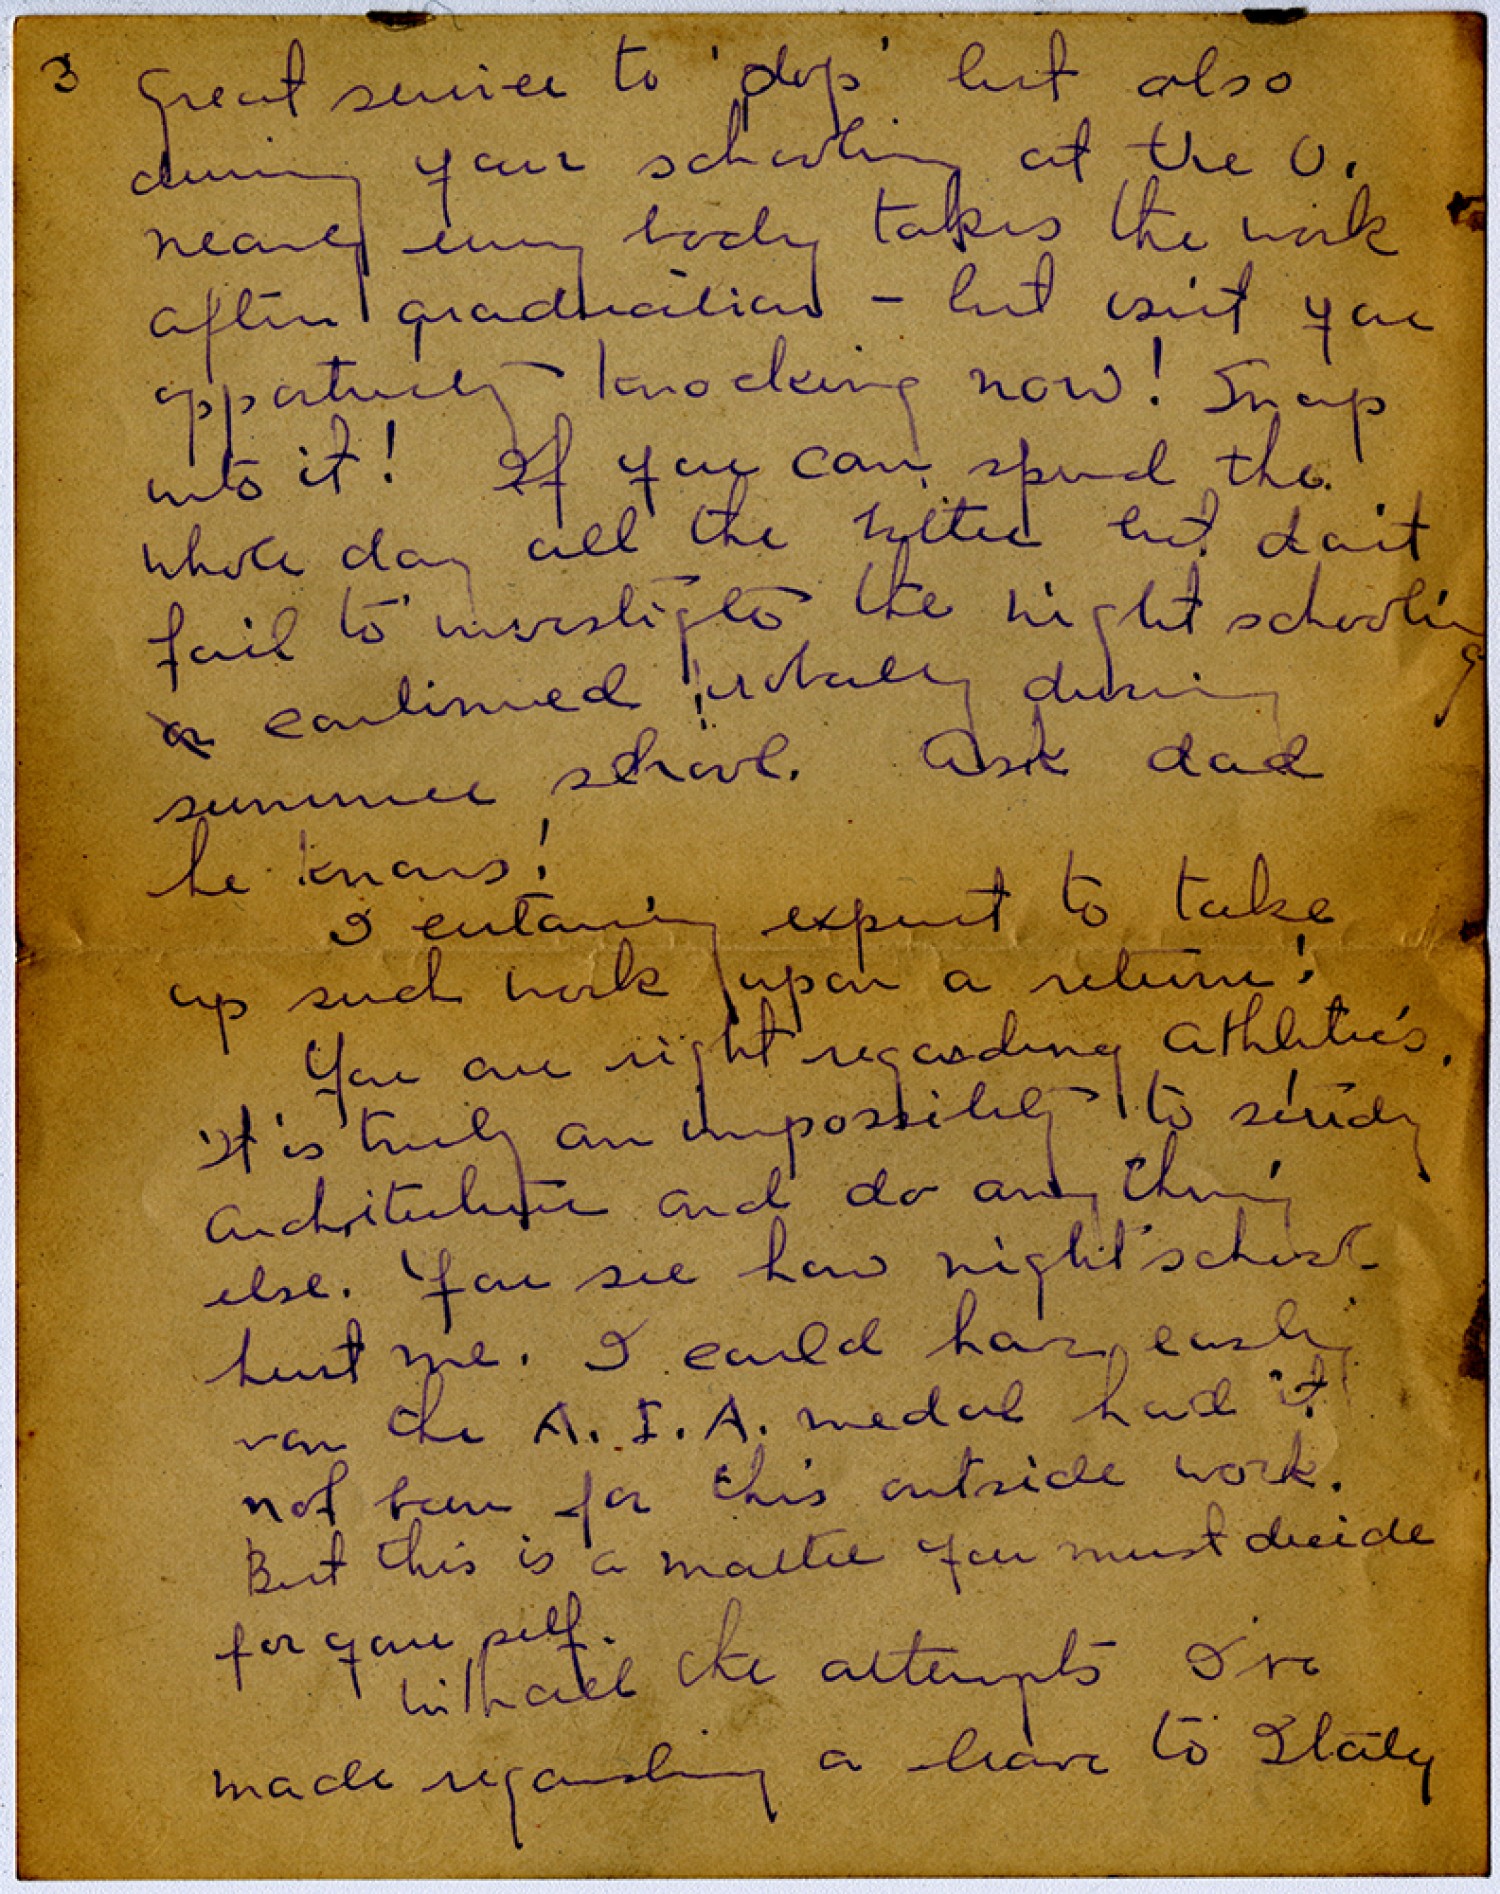 3 Great service to 'dop' but also
during your schooling at the U.
nearly every body takes the work
after graduation – but isn't your
opportunity knocking now! Snap
into it! If you can spend the
whole day all the better but don't
fail to investigate the night schooling
continued probably during
summer school. Ask dad
he knows!
I certainly expect to take
up such work upon a return!
You are right regarding athletics.
It is truly an impossibility to study
architecture and do anything
else. You see how night school
hurt me. I could have easily
won the A.I.A. medal had it
not been for this outside work.
But this is a matter you must decide
for your self.
With all the attempts I've
made regarding a leave to Italy